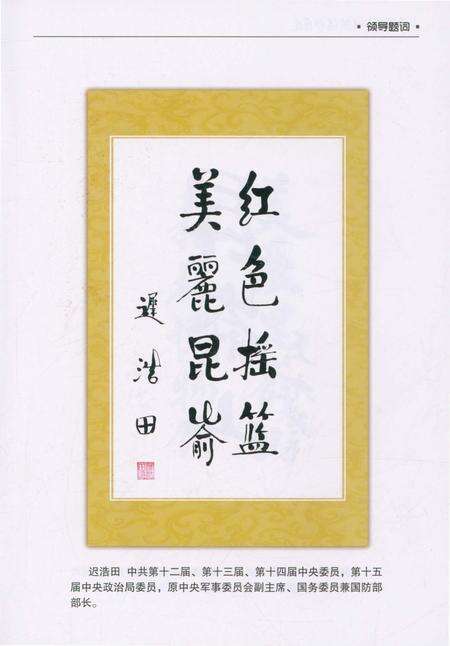 ·领导题词·
红色摇篮
美麗昆嵛
遲浩田
迟浩田 中共第十二届、第十三届、第十四届中央委员，第十五
届中央政治局委员，原中央军事委员会副主席、国务委员兼国防部
部长。